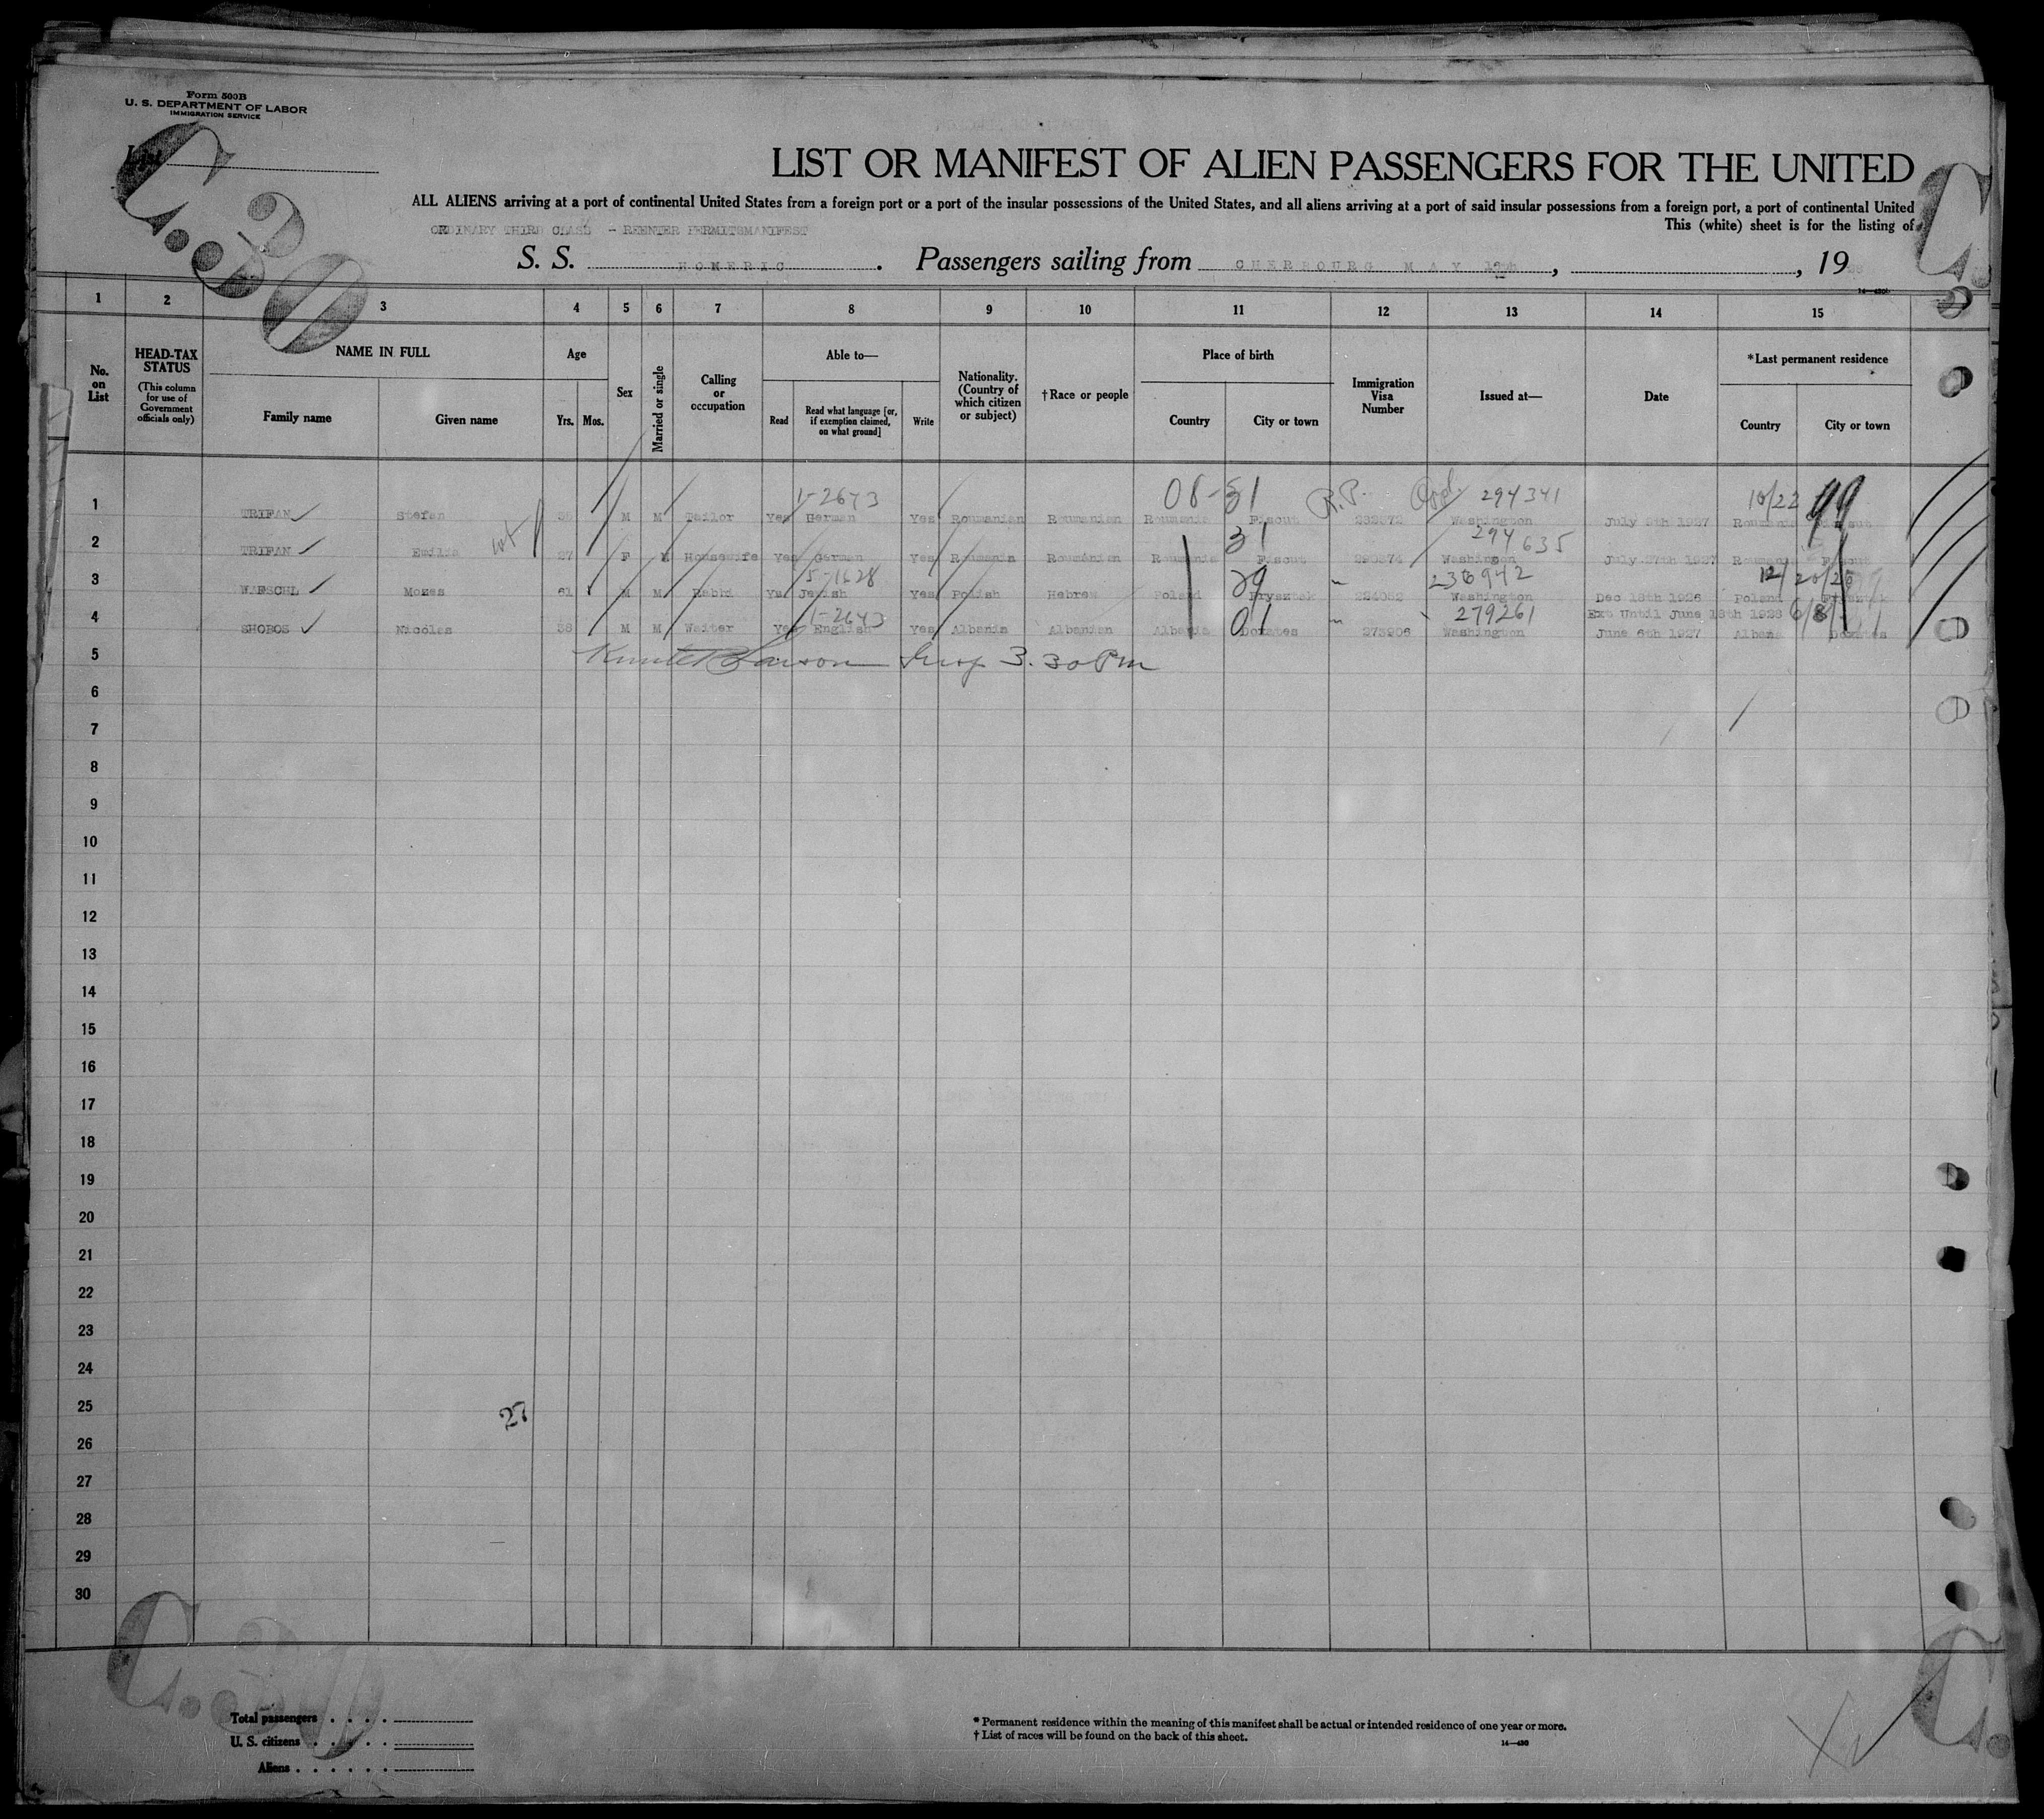 Form 500B
U. S. DEPARTMENT OF LABOR
IMMIGRATION SERVICE
C.30
List
LIST OR MANIFEST OF ALIEN PASSENGERS FOR THE UNITED
ALL ALIENS arriving at a port of continental United States from a foreign port or a port of the insular possessions of the United States, and all aliens arriving at a port of said insular possessions from a foreign port, a port of continental United
This (white) sheet is for the listing of
ORDINARY THIRD CLASS - REENTER PERMITSMANIFEST
S. S. HOMERIC. Passengers sailing from CHERBOURG MAY , , 19
1 2 3 4 5 6 7 8 9 10 11 12 13 14 15
No. on List
HEAD-TAX STATUS (This column for use of Government officials only)
NAME IN FULL
Family name Given name
Age
Yrs. Mos.
Sex
Married or single
Calling or occupation
Able to—
Read Read what language [or, if exemption claimed, on what ground] Write
Nationality. (Country of which citizen or subject)
†Race or people
Place of birth
Country City or town
Immigration Visa Number
Issued at—
Date
*Last permanent residence
Country City or town
1-2643 08-31 R.P. 294341 10/22
1 TRIFAN Stefan M M Tailor Yes German Yes Roumanian Roumanian Roumania Washington July 5th 1927 Roumania
31 294635
2 TRIFAN Emilia 27 F M Housewife Yes German Yes Roumania Roumanian Roumania Washington July 1927 Roumania
5-1628 29 236942 12/20/26
3 Moses 61 M M Rabbi Yes Jewish Yes Polish Hebrew Poland Frysztak Washington Dec 18th 1926 Poland Frysztak
Ext Until June 18th 1928
1-2643 01 279261 6/8/
4 SHOBOS Nicolas 38 M M Waiter Yes English Yes Albania Albanian Albania Donates 273906 Washington June 6th 1927 Albana Donates
5 Larson Insp 3.30 Pm
6
7
8
9
10
11
12
13
14
15
16
17
18
19
20
21
22
23
24
25
27
26
27
28
29
30
C.30
Total passengers
U. S. citizens
Aliens
* Permanent residence within the meaning of this manifest shall be actual or intended residence of one year or more.
† List of races will be found on the back of this sheet.
14—430